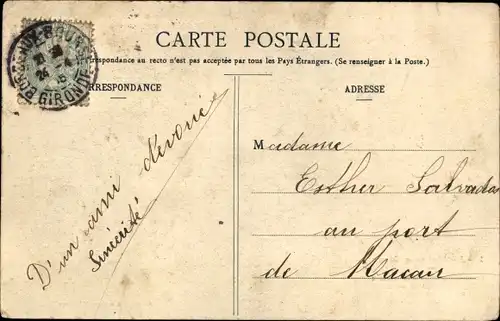 CARTE POSTALE
rrespondance au recto n'est pas acceptée par tous les Pays Étrangers. (Se renseigner à la Poste.)
RRESPONDANCE
ADRESSE
BORDEAUX-BOURSE
GIRONDE
D'un ami dévoué
Sincérité
Madame
Esther Salvadas
au port
de Macau